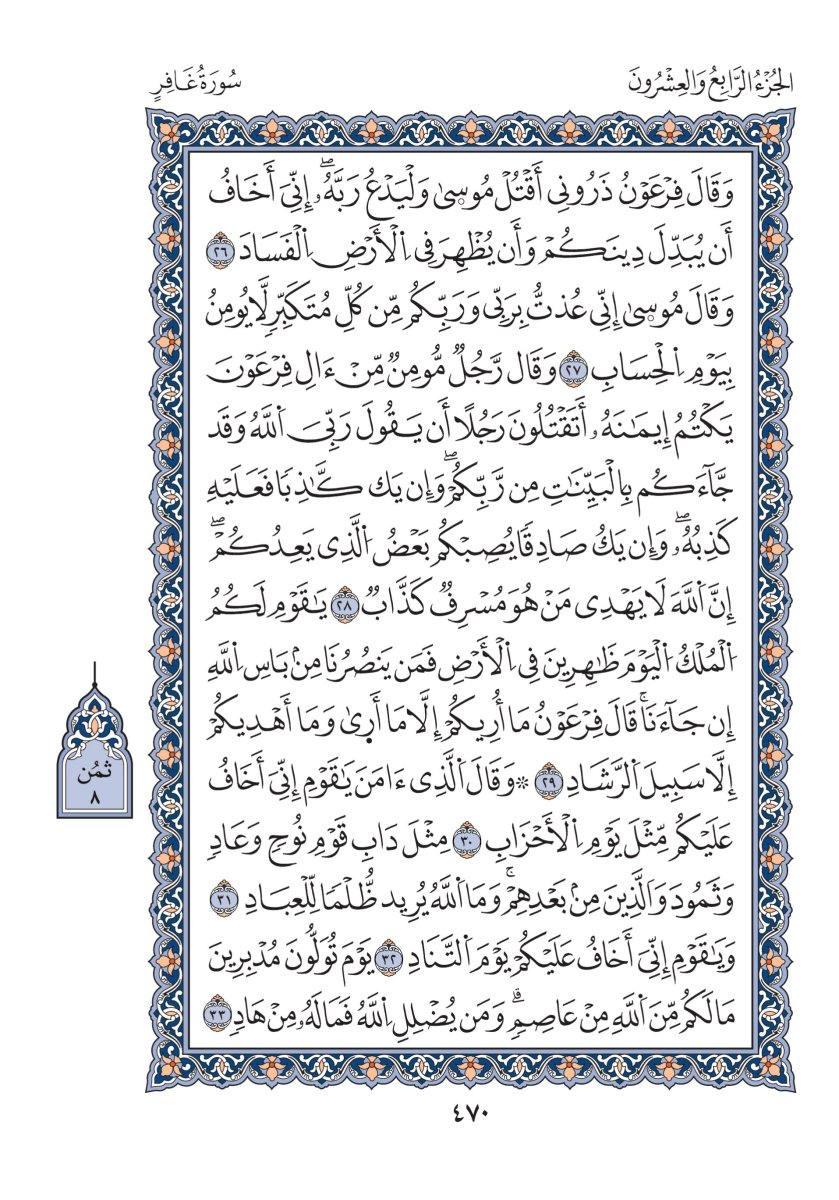 الجُزْءُ الرَّابِعُ وَالعِشْرُونَ
سُورَةُ غَافِرٍ
وَقَالَ فِرْعَوْنُ ذَرُونِي أَقْتُلْ مُوسۭيٰ وَلْيَدْعُ رَبَّهُۥٓۖ إِنِّيَ أَخَافُ
أَن يُبَدِّلَ دِينَكُمْ وَأَن يُظْهِرَ فِي اِ۬لْأَرْضِ اِ۬لْفَسَادَ ٢٦
وَقَالَ مُوسۭيٰ إِنِّي عُذتُّ بِرَبِّي وَرَبِّكُم مِّن كُلِّ مُتَكَبِّرٖ لَّا يُومِنُ
بِيَوْمِ اِ۬لْحِسَابِ ٢٧ وَقَال رَّجُلٞ مُّومِنٞ مِّنْ ءَالِ فِرْعَوْنَ
يَكْتُمُ إِيمَٰنَهُۥ أَتَقْتُلُونَ رَجُلًا أَن يَقُولَ رَبِّيَ اَ۬للَّهُ وَقَد
جَّآءَكُم بِالْبَيِّنَٰتِ مِن رَّبِّكُمْۖ وَإِن يَك كَّٰذِبٗا فَعَلَيْهِ
كَذِبُهُۥۖ وَإِن يَكُ صَادِقٗا يُصِبْكُم بَعْضُ اُ۬لَّذِي يَعِدُكُمْۖ
إِنَّ اَ۬للَّهَ لَا يَهْدِي مَنْ هُوَ مُسْرِفٞ كَذَّابٞ ٢٨ يَٰقَوْمِ لَكُمُ
اُ۬لْمُلْكُ اُ۬لْيَوْمَ ظَٰهِرِينَ فِي اِ۬لْأَرْضِ فَمَن يَنصُرُنَا مِنۢ بَاسِ اِ۬للَّهِ
إِن جَآءَنَاۚ قَالَ فِرْعَوْنُ مَا أُرِيكُم إِلَّا مَا أَرۭيٰ وَمَا أَهْدِيكُم
إِلَّا سَبِيلَ اَ۬لرَّشَادِ ٢٩ ۞ وَقَالَ اَ۬لَّذِي ءَامَنَ يَٰقَوْمِ إِنِّيَ أَخَافُ
عَلَيْكُم مِّثْلَ يَوْمِ اِ۬لْأَحْزَابِ ٣٠ مِثْلَ دَابِ قَوْمِ نُوحٖ وَعَادٖ
وَثَمُودَ وَالَّذِينَ مِنۢ بَعْدِهِمْۚ وَمَا اَ۬للَّهُ يُرِيد ظُّلْمٗا لِّلْعِبَادِ ٣١
وَيَٰقَوْمِ إِنِّيَ أَخَافُ عَلَيْكُم يَوْمَ اَ۬لتَّنَادِ ٣٢ يَوْمَ تُوَلُّونَ مُدْبِرِينَ
مَا لَكُم مِّنَ اَ۬للَّهِ مِنْ عَاصِمٖۗ وَمَن يُضْلِلِ اِ۬للَّهُ فَمَا لَهُۥ مِنْ هَادٖ ٣٣
ثمُن
٨
٤٧٠